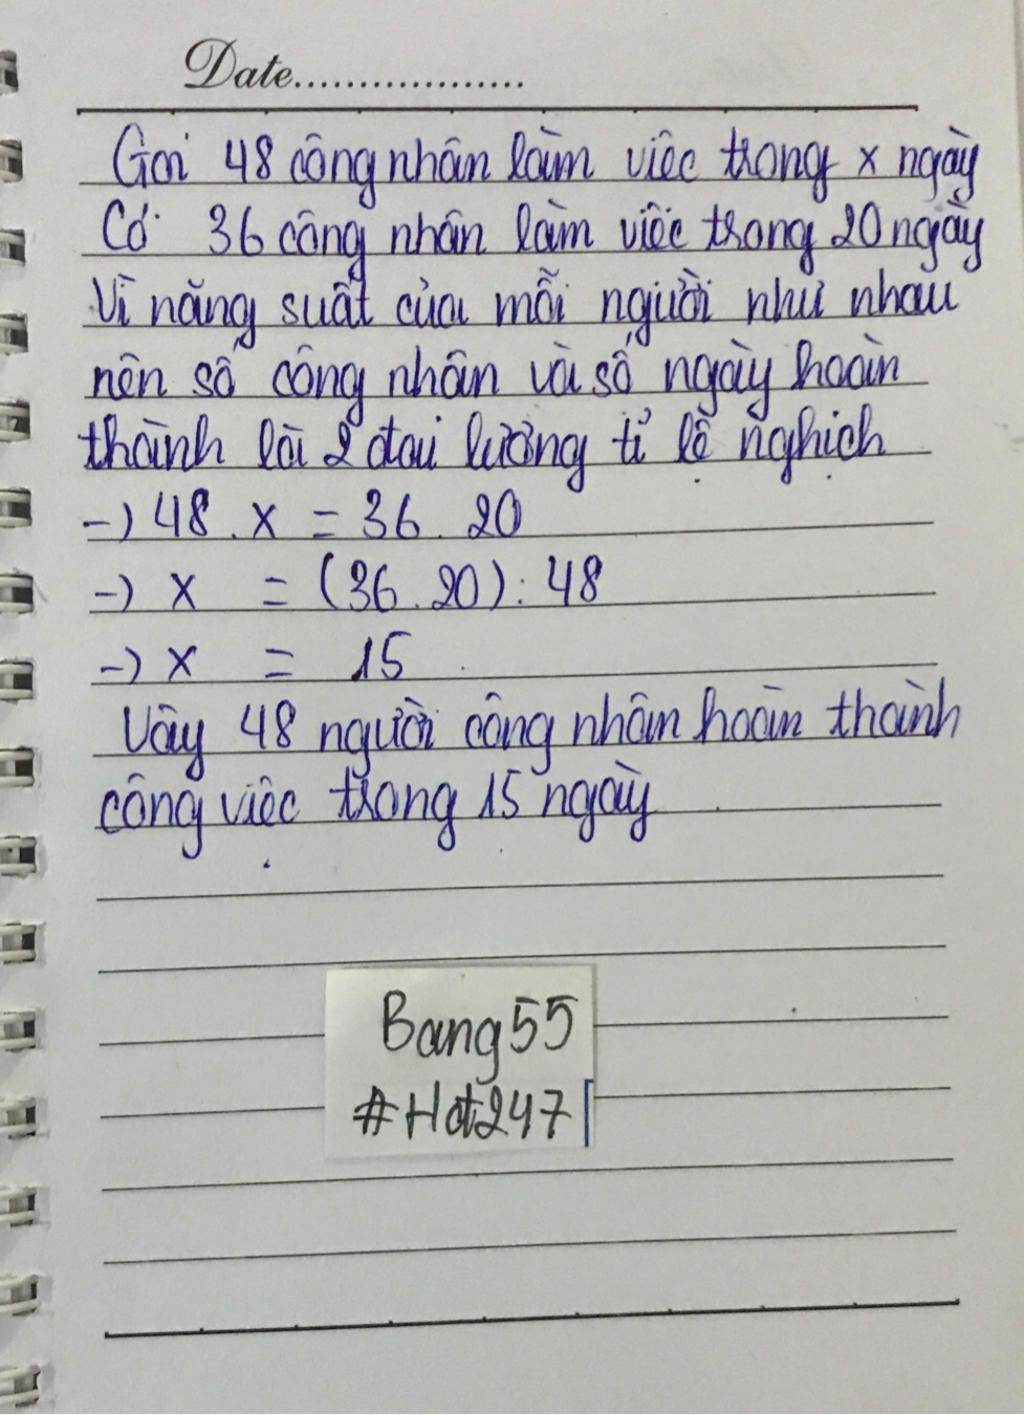 Date..................
Gọi 48 công nhân làm việc trong x ngày
Có 36 công nhân làm việc trong 20 ngày
Vì năng suất của mỗi người như nhau
nên số công nhân và số ngày hoàn
thành là 2 đại lượng tỉ lệ nghịch
-) 48 . x = 36 . 20
-) x = (36 . 20) : 48
-) x = 15
Vậy 48 người công nhân hoàn thành
công việc trong 15 ngày
Bang55
#Hot247